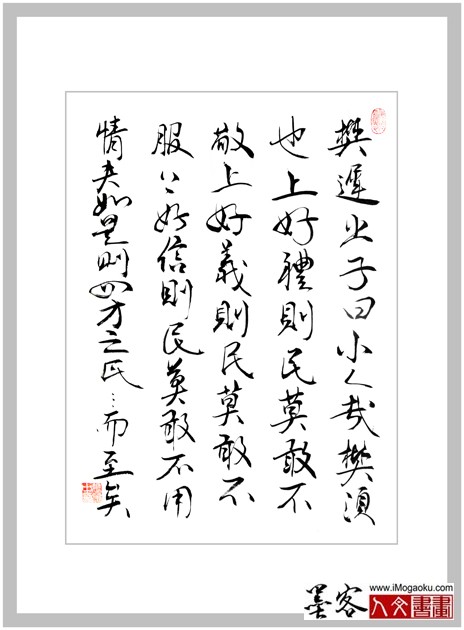 樊遲出子曰小人哉樊須
也上好禮則民莫敢不
敬上好義則民莫敢不
服上好信則民莫敢不用
情夫如是則四方之民…而至矣
墨客
www.iMogaoku.com
人文書畫